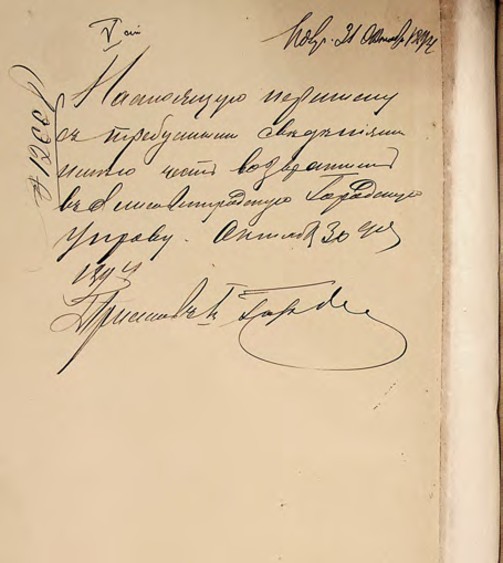 V ст
Пол. 31 Октября 1894
№ 1266
Настоящую переписку
съ требуемыми сведениями
имею честь возвратить
въ Елисаветградскую Городскую
Управу. Октября 30 дня
1894
Приставъ